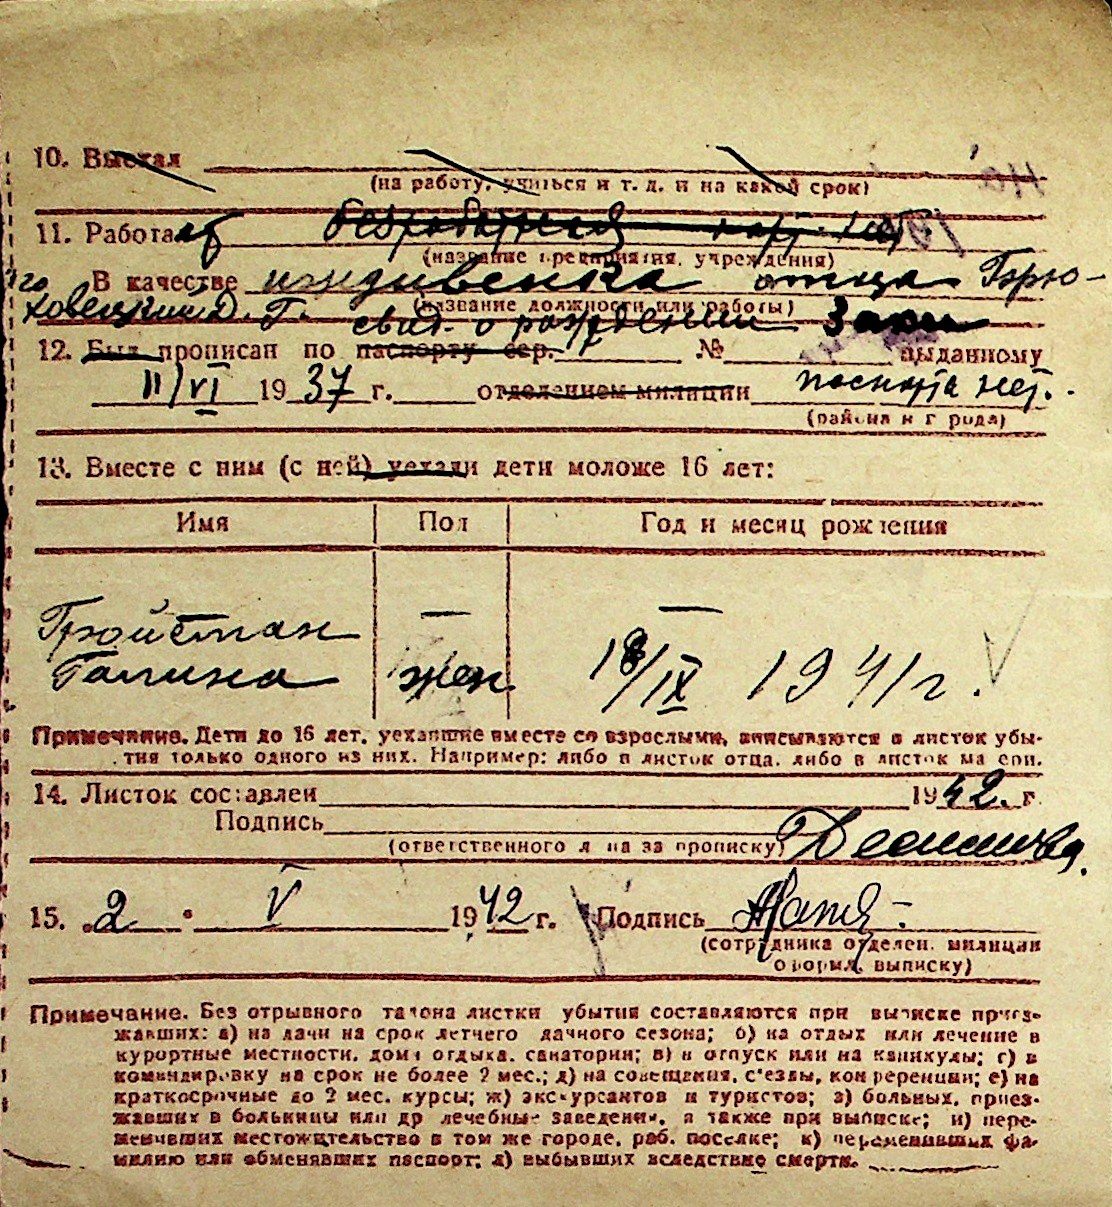 10. Выехал
(на работу, учиться и т. д. и на какой срок)
11. Работает безработная
(название предприятия, учреждения)
В качестве иждивенка отца Брю-
ховецкий Д. Г.
(название должности или работы)
свид. о рождении
12. Был прописан по паспорту сер. № выданному
11/VI 1937 г. отделением милиции паспорта нет.
(района и города)
13. Вместе с ним (с ней) уехали дети моложе 16 лет:
Имя Пол Год и месяц рождения
Гройсман — —
Галина жен 18/IX 1941 г.
Примечание. Дети до 16 лет, уехавшие вместе со взрослыми, вписываются в листок убы-
тия только одного из них. Например: либо в листок отца, либо в листок матери.
14. Листок составлен 1942. г.
Подпись
(ответственного лица за прописку)
15. 2 V 1942 г. Подпись
(сотрудника отделен. милиции
оформл. выписку)
Примечание. Без отрывного талона листки убытия составляются при выписке приез-
жавших: а) на дачи на срок летнего дачного сезона; б) на отдых или лечение в
курортные местности, дома отдыха, санатории; в) в отпуск или на каникулы; г) в
командировку на срок не более 2 мес.; д) на совещания, с'езды, конференции; е) на
краткосрочные до 2 мес. курсы; ж) экскурсантов и туристов; з) больных, приез-
жавших в больницы или др лечебные заведения, а также при выписке; и) пере-
менивших местожительство в том же городе, раб. поселке; к) переменивших фа-
милию или обменявших паспорт; л) выбывших вследствие смерти.